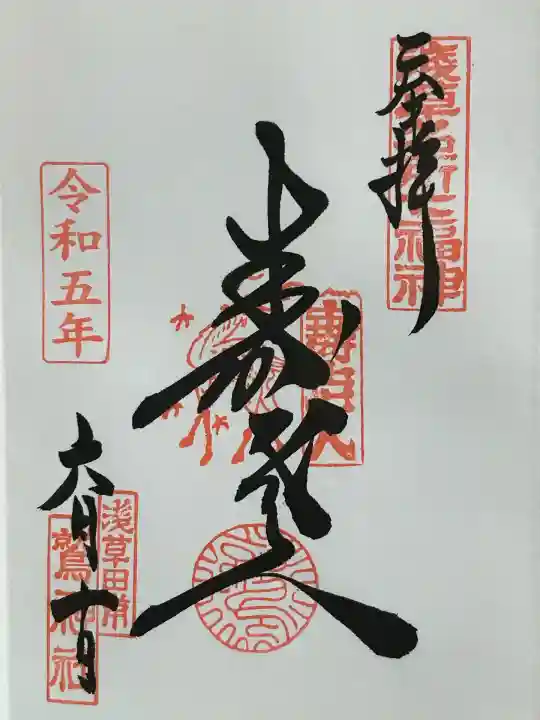 奉拝
浅草名所七福神
寿老人
壽老人
令和五年
六月十日
浅草田甫
鷲神社